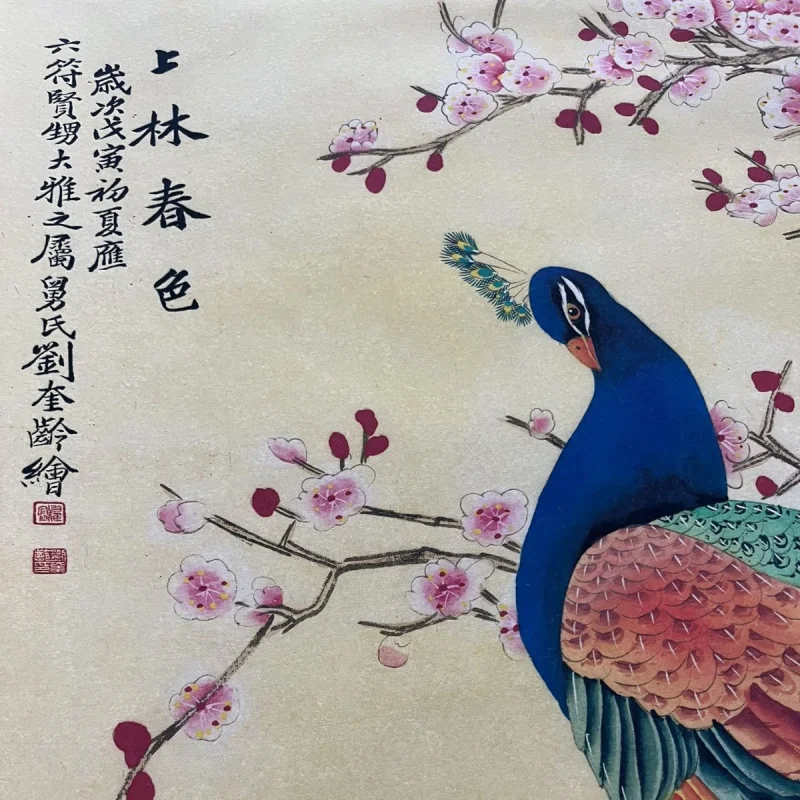 上林春色
歲次戊寅初夏應
六符賢甥大雅之屬舅氏劉奎齡繪